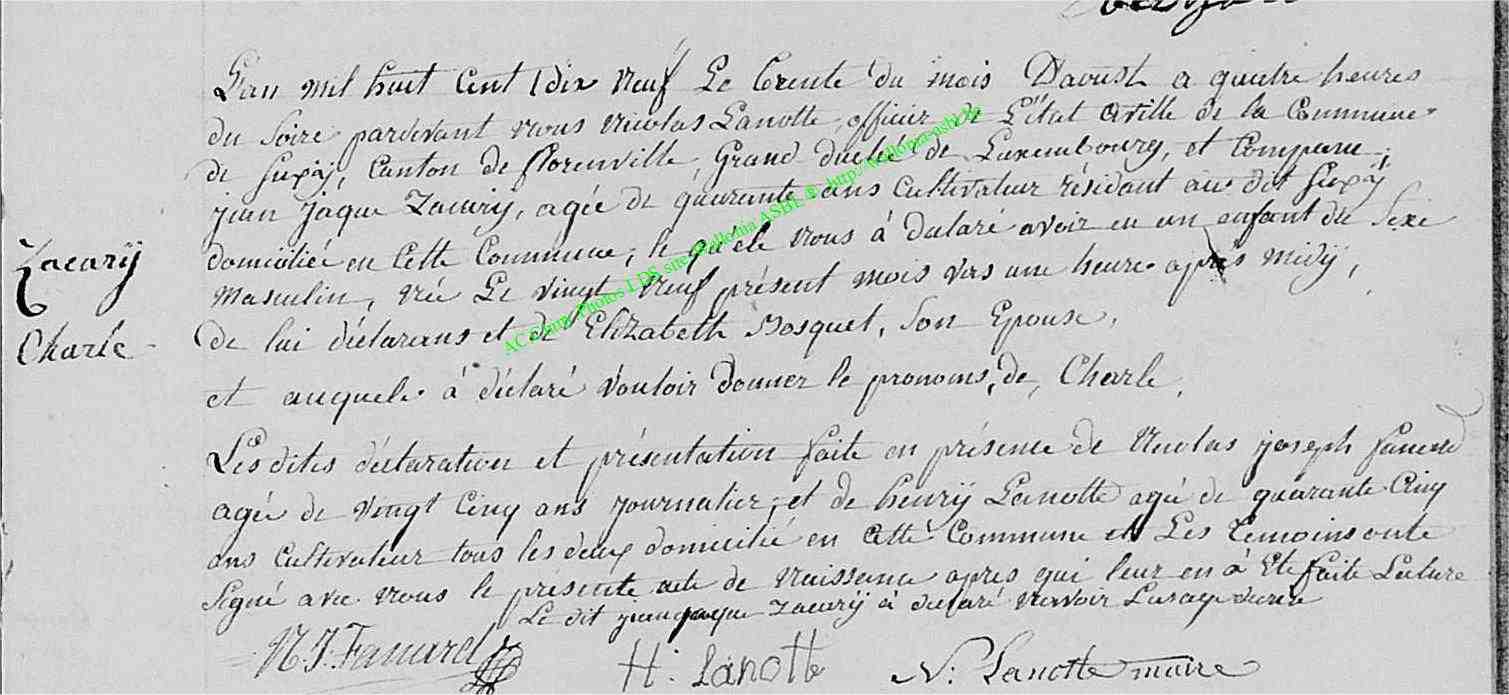 Zacarÿ
Charle
L'an mil huit Cent dix neuf Le trente du mois D'avust a quatre heures
du Soire pardevant nous Nicolas Lanotte, officier de L'état Civille de la Commune
de Suxÿ, Canton de florenville, Grand duché de Luxembourg, et Comparu,
jean jaque Zacarÿ, agée de quarante ans Cultivateur résidant au dit Suxÿ
domiciliée en Cette Commune, le quele nous à déclaré avoir eu un enfant du Sexe
Masculin, née Le vingt neuf présent mois vers une heure après midÿ,
de lui déclarans et de Elizabeth Bosquet, Son Epouse,
et auquele à déclaré vouloir donner le prenoms, de, Charle,
Les dites déclaration et présentation faite en présence de Nicolas joseph fanard
agée de vingt Cinq ans journalier, et de henrÿ Lanotte agée de quarante Cinq
ans Cultivateur tous les deux domicilié en Cette Commune et Les temoins onte
Signé avec nous le présente acte de Naissance après qui leur en à Eté faite Lecture
Le dit jean jaque Zacarÿ à déclaré
N J. Fanard
H. Lanotte
N. Lanotte maire
AC Photos LDS site Wallonia ASBL © http://wallonia-asbl.be